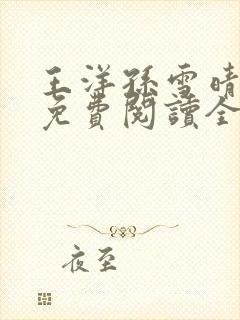 王洋孫雪晴
免費閱讀全
夜至